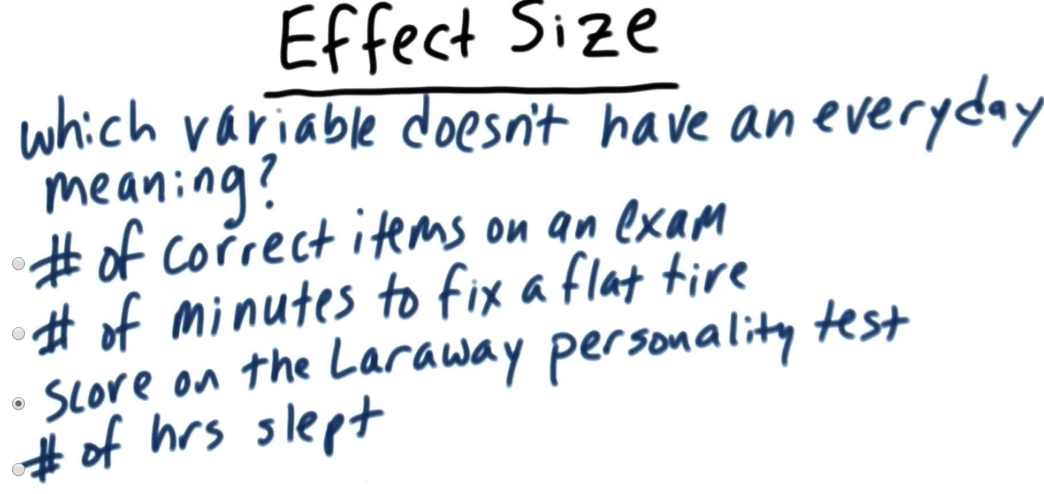 Effect Size
which variable doesn't have an everyday
meaning?
# of correct items on an exam
# of minutes to fix a flat tire
Score on the Laraway personality test
# of hrs slept